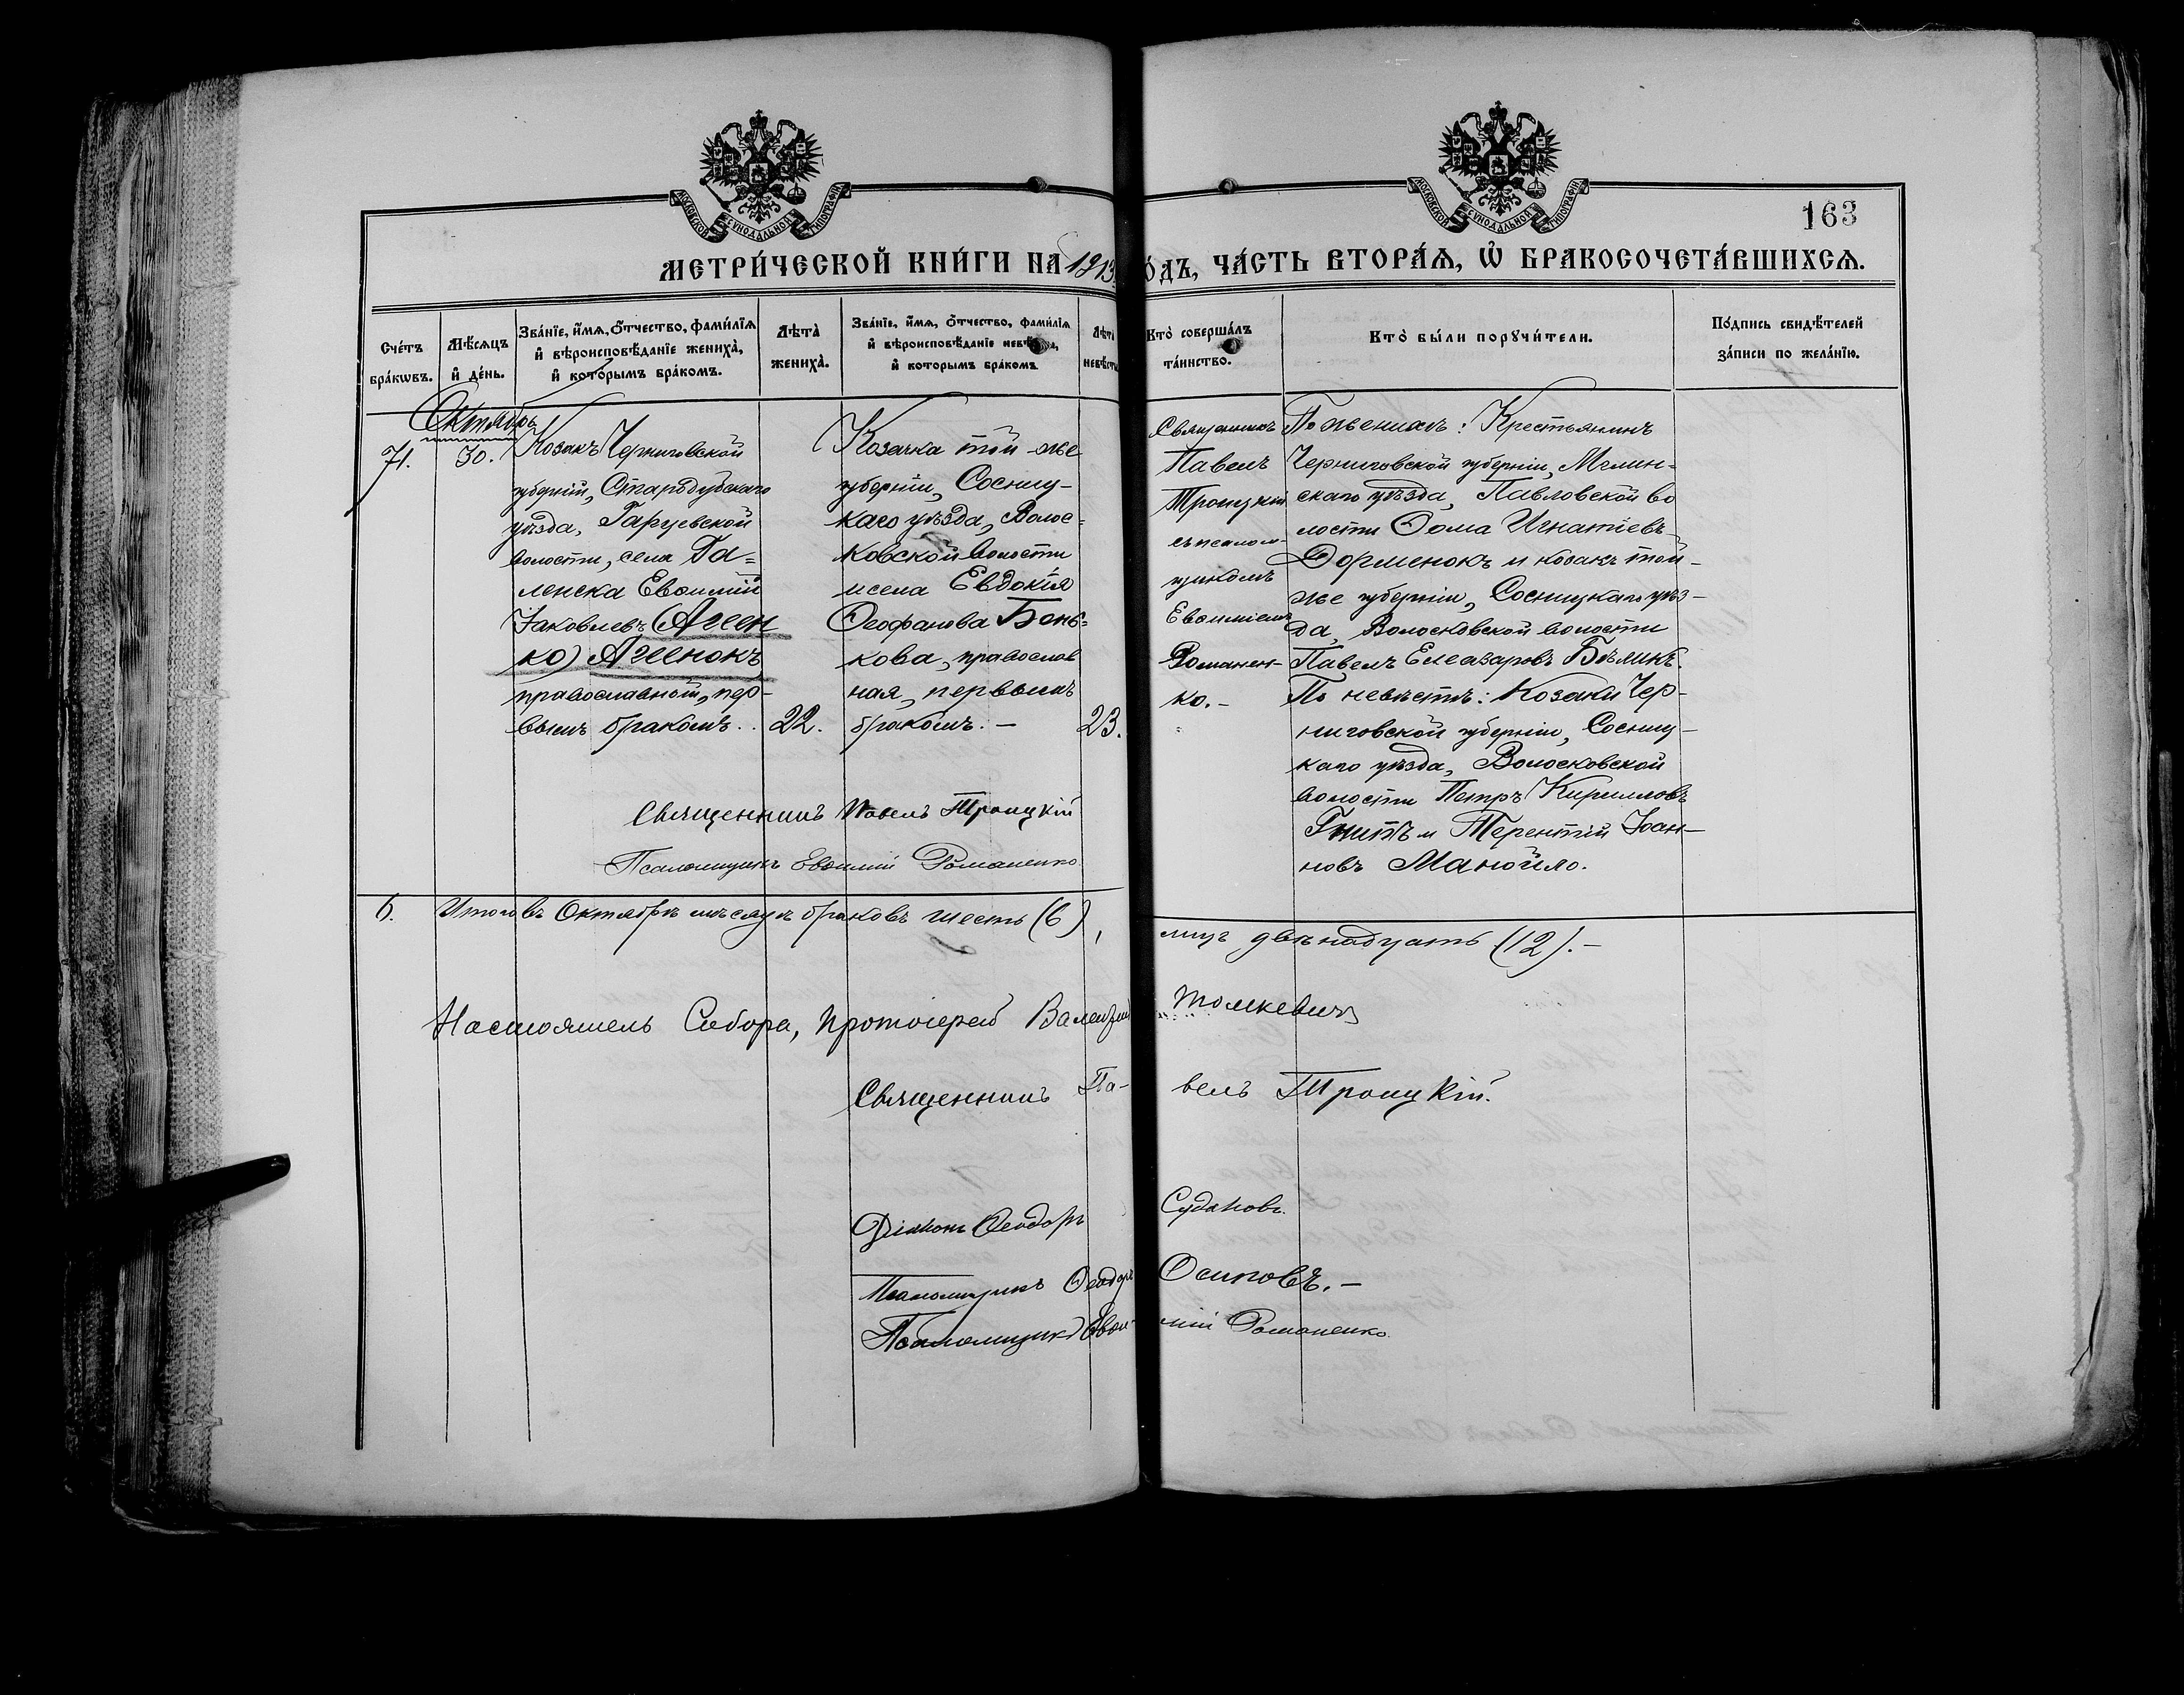 МОСКОВСКОЙ СѴНОДАЛЬНОЙ ТИПОГРАФІИ
МОСКОВСКОЙ СѴНОДАЛЬНОЙ ТИПОГРАФІИ
163
МЕТРИ́ЧЕСКОЙ КНИ́ГИ НА 1913 ГО́ДЪ, ЧА́СТЬ ВТОРА́Ѧ, Ѡ҆ БРАКОСОЧЕТА́ВШИХСѦ.
Сче́тъ
бра́кѡвъ.
Мѣ́сѧцъ
и҆ де́нь.
Зва́нїе, и҆́мѧ, ѻ҆́тчество, фами́лїѧ
и҆ вѣроисповѣ́данїе жениха̀,
и҆ кото́рымъ бра́комъ.
Лѣта̀
жениха̀.
Зва́нїе, и҆́мѧ, ѻ҆́тчество, фами́лїѧ
и҆ вѣроисповѣ́данїе невѣ́сты,
и҆ кото́рымъ бра́комъ
Лѣта̀
невѣ́сты
Кто̀ соверша́лъ
та́инство.
Кто̀ бы́ли порꙋчи́тели.
По́дпись свидѣ́телей
за́писи по жела́нїю.
Октябрь
71.
30.
Козакъ Черниговской
губерніи, Стародубскаго
уѣзда, Гарцевской
волости, села Га=
ленска Евѳимій
Іаковлевъ (Агеен
ко) Агеенокъ
православный, пер-
вымъ бракомъ..
22.
Козачка той-же
губерніи, Сосниц-
каго уѣзда, Волос-
ковской волости
и села Евдокія
Ѳеофанова Бонь=
кова, православ
ная, первымъ
бракомъ. -
23.
Священникъ
Павелъ
Троицкій
съ псалом-
щикомъ
Евѳиміемъ
Романен-
ко. -
По женихѣ: Крестьянинъ
Черниговской губерніи, Мглин=
скаго уѣзда, Павловской во
лости Ѳома Игнатіевъ
Дорменокъ и козакъ той-
же губерніи, Сосницкаго уѣз-
да, Волосковской волости
Павелъ Елеазаровъ Бѣликъ.
По невѣстѣ: Козаки Чер-
ниговской губерніи, Сосниц-
каго уѣзда, Волосковской
волости Петръ Кирилловъ
Гнитъ и Терентій Іоан-
новъ Манойло.
Священникъ Павелъ Троицкій
Псаломщикъ Евѳимій Романенко
6. Итого въ Октябрѣ мѣсяцѣ браковъ шесть (6), лицъ двѣнадцать (12). -
Настоятель Собора, Протоіерей Валерій Томкевичъ
Священникъ Павелъ Троицкій.
Діаконъ Ѳеодоръ Судаковъ.
Псаломщикъ Ѳеодоръ Осиповъ. -
Псаломщикъ Евѳимій Романенко.